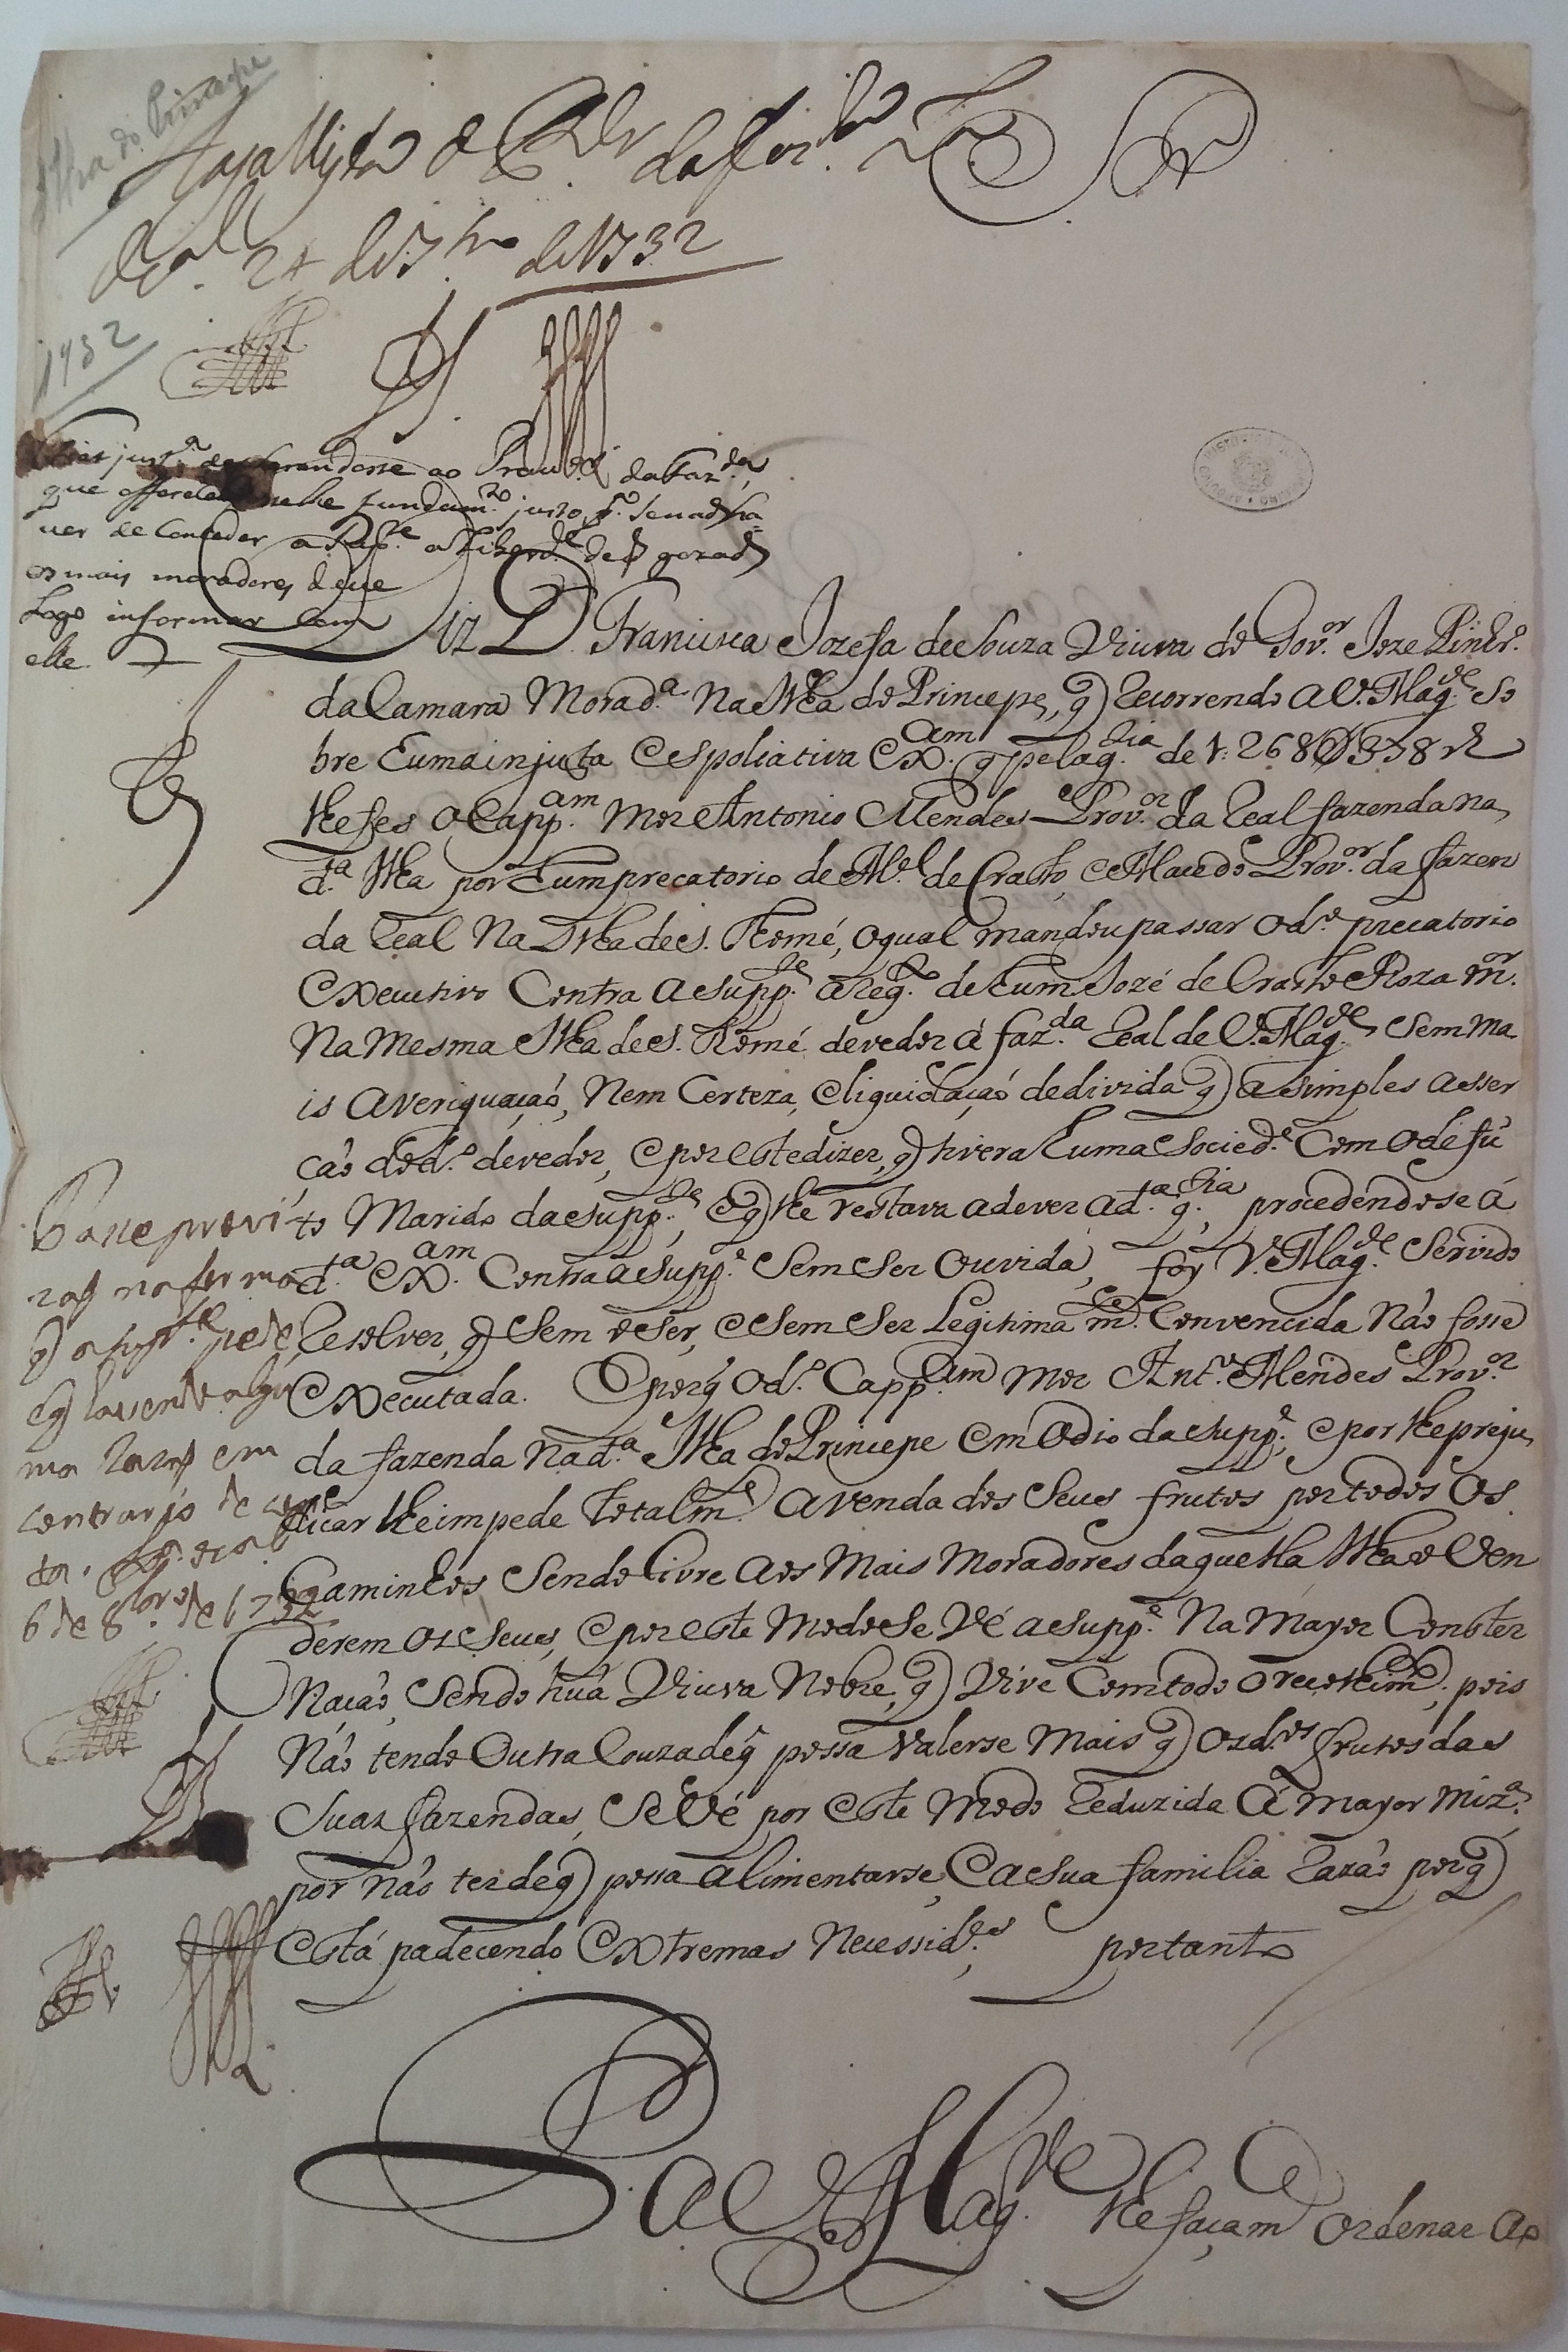 Ilha do Principe
Haja Vista o Cons.ro da faz.da
24 de 7.bro de 1732
Snor
1732
ao Procu.or da Faz.da
que offerece fundam.to justo p.a senaõ ha
ver de conceder a Sup.te a Liberd.e de q gozaõ
os mais moradores deve
Logo informar com
elle.
Diz D. Francisca Jozefa de Souza Viuva do Gov.or Joze Pinhr.o
da Camara Morad.a Na Ilha do Principe, q recorrendo a V. Mag.de so
bre huma injusta e espoliativa ex.am q pela q.tia de 1:268$378 rs
lhe fes o Capp.am Mor Antonio Mendes Prov.or da Real fazenda na
d.ta Ilha por hum precatorio de M.el de Crasto, e Macedo Prov.or da fazen
da Real Na Ilha de S. Thomé, o qual mandou passar o d.o precatorio
executivo Contra a Supp.te a req.to de hum Jozé de Crasto Roza m.or
Na Mesma Ilha de S. Thomé devedor á faz.da Real de V. Mag.de Sem ma
is averiguaçaõ, Nem Certeza, e liquidaçaõ de divida q a simples asser
çaõ do d.o devedor, e por este dizer, q tivera huma socied.e Com o defu
to Marido da supp.te, e q lhe restava a dever a d.ta q.tia, procedendose á
d.ta ex.am Contra a supp.e Sem Ser Ouvida, foy V. Mag.de Servido
Resolver, q Sem o Ser, e Sem Ser Legitimam.te Convencida Naõ fosse
executada. E porq o d.o Capp.am Mor Ant.o Mendes Prov.or
da fazenda Na d.ta Ilha do Principe em odio da supp.e, e por lhe preju
dicar lhe impede totalm.te a venda dos Seus frutos por todos os
Caminhos Sendo livre aos Mais Moradores daquella Ilha o Ven
derem os Seus, e por este Modo Se Vé a supp.e Na Mayor Conster
Naçaõ, Sendo hua Viuva Nobre, q Vive Com todo o recolhim.to, pois
Naõ tendo Outra Couza de q possa Valerse Mais q os d.os frutos das
Suas fazendas, Se Vé por este Modo reduzida á mayor miz.a
por naõ ter de q possa alimentarse, e a sua familia razaõ porq
está padecendo extremas Necessid.es, portanto
Passe provi
zaõ na forma
q a sup.te pede,
e q havendo algu
ma razaõ em
contrario
6 de 8.bro de 1732
P. a V. Mag.de lhe façam Ordenar ao